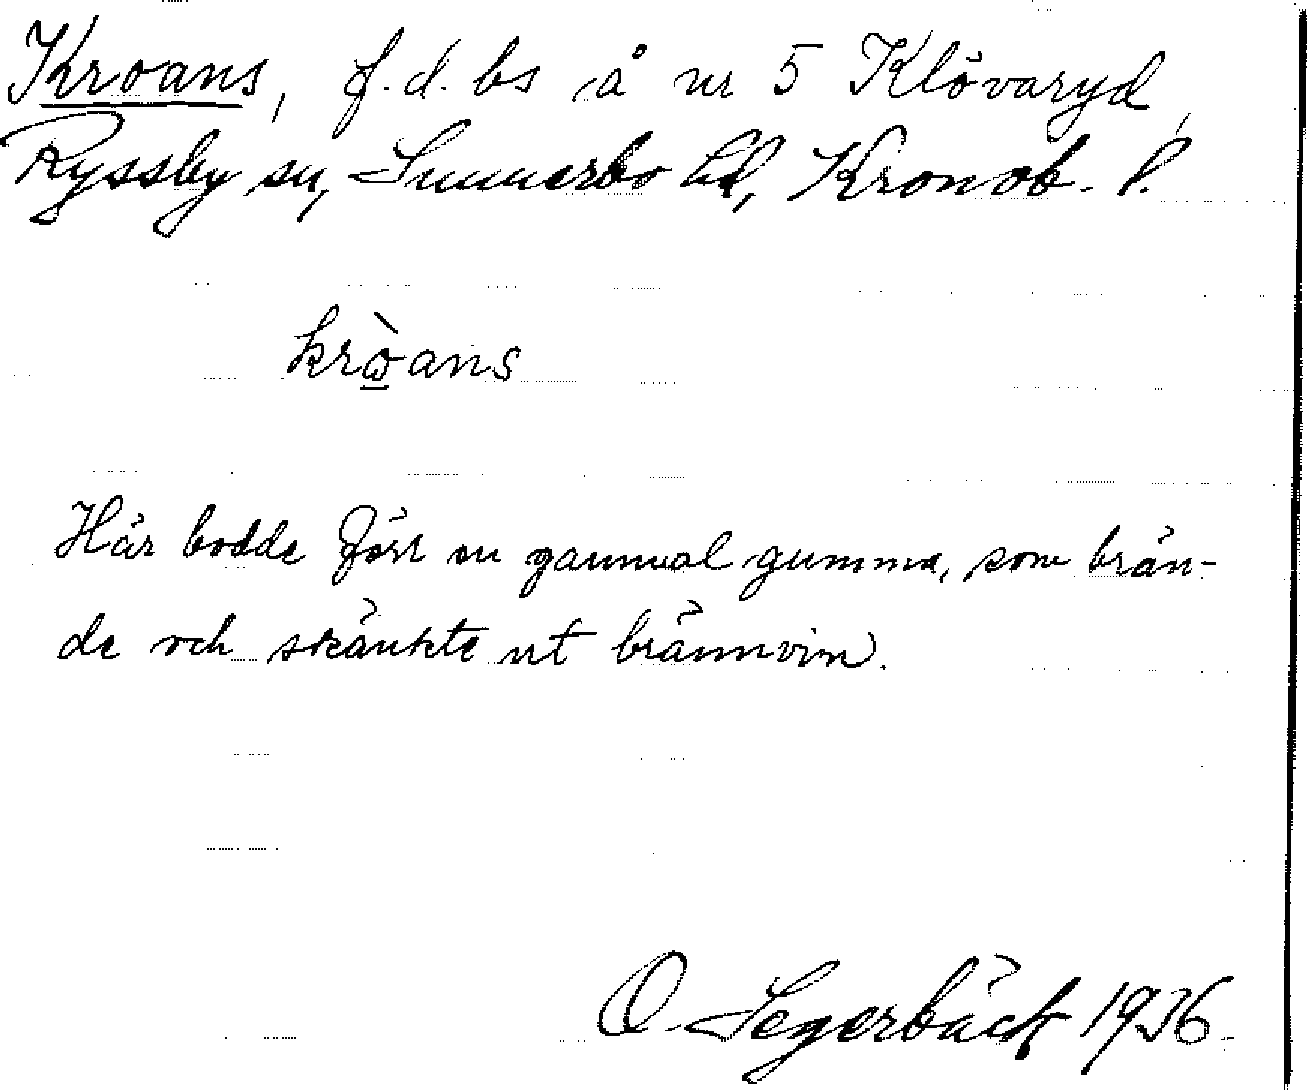 Kroans, f.d. bs å nr 5 Klövaryd,
Ryssby sn, Sunnerbo hd, Kronob. l.
krὼans
Här bodde förr en gammal gumma, som brän-
de och skänkte ut brännvin.
O. Segerbäck 1936